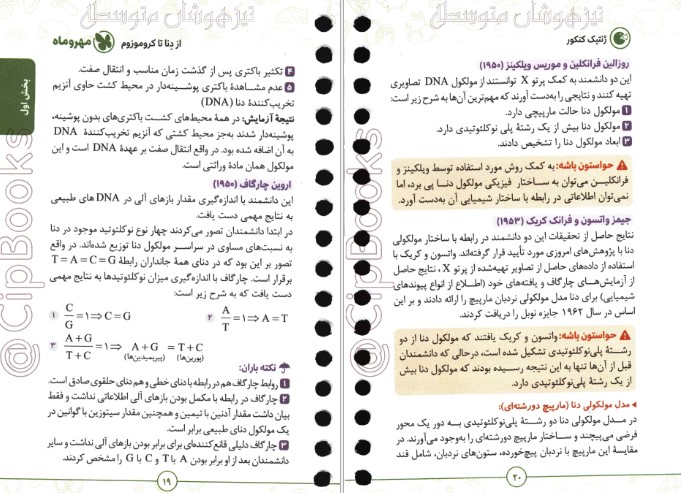 تیزهوشان متوسطه
از دِنا تا کروموزوم مهروماه
بخش اول
۴ تکثیر باکتری پس از گذشت زمان مناسب و انتقال صفت.
۵ عدم مشاهدهٔ باکتری پوشینه‌دار در محیط کشت حاوی آنزیم
تخریب‌کنندهٔ دِنا (DNA)
نتیجهٔ آزمایش: در همهٔ محیط‌های کشت باکتری‌های بدون پوشینه،
پوشینه‌دار شدند به‌جز محیط کشتی که آنزیم تخریب‌کنندهٔ DNA
به آن اضافه شده بود. در واقع انتقال صفت بر عهدهٔ DNA است و این
مولکول همان مادهٔ وراثتی است.
اروین چارگاف (۱۹۵۰)
این دانشمند با اندازه‌گیری مقدار بازهای آلی در DNA های طبیعی
به نتایج مهمی دست یافت.
در ابتدا دانشمندان تصور می‌کردند چهار نوع نوکلئوتید موجود در دنا
به نسبت‌های مساوی در سراسر مولکول دنا توزیع شده‌اند. در واقع
تصور بر این بود که در دنای همهٔ جانداران رابطهٔ T = A = C = G
برقرار است. چارگاف با اندازه‌گیری میزان نوکلئوتیدها به نتایج مهمی
دست یافت که به شرح زیر است:
۱ C/G = ۱ ⇒ C = G ۲ A/T = ۱ ⇒ A = T
۳ A+G/T+C = ۱ ⇒ A+G = T+C
(پورین‌ها) (پیریمیدین‌ها)
نکته باران:
۱ روابط چارگاف هم در رابطه با دنای خطی و هم دنای حلقوی صادق است.
۲ چارگاف در رابطه با مکمل بودن بازهای آلی اطلاعاتی نداشت و فقط
بیان داشت مقدار آدنین با تیمین و همچنین مقدار سیتوزین با گوانین در
یک مولکول دنای طبیعی برابر است.
۳ چارگاف دلیلی قانع‌کننده‌ای برای برابر بودن بازهای آلی نداشت و سایر
دانشمندان بعد از او برابر بودن A با T و C با G را مشخص کردند.
۱۹
تیزهوشان متوسطه
ژنتیک کنکور
روزالین فرانکلین و موریس ویلکینز (۱۹۵۰)
این دو دانشمند به کمک پرتو X توانستند از مولکول DNA تصاویری
تهیه کنند و نتایجی را به‌دست آورند که مهم‌ترین آن‌ها به شرح زیر است:
۱ مولکول دنا حالت مارپیچی دارد.
۲ مولکول دنا بیش از یک رشتهٔ پلی نوکلئوتیدی دارد.
۳ ابعاد مولکول دنا را تشخیص دادند.
حواستون باشه: به کمک روش مورد استفاده توسط ویلکینز و
فرانکلین می‌توان به ساختار فیزیکی مولکول دنا پی برد، اما
نمی‌توان اطلاعاتی در رابطه با ساختار شیمیایی آن به‌دست آورد.
جیمز واتسون و فرانک کریک (۱۹۵۳)
نتایج حاصل از تحقیقات این دو دانشمند در رابطه با ساختار مولکولی
دنا با پژوهش‌های امروزی مورد تأیید قرار گرفته‌اند. واتسون و کریک با
استفاده از داده‌های حاصل از تصاویر تهیه‌شده از پرتو X، نتایج حاصل
از آزمایش‌های چارگاف و یافته‌های خود (اطلاع از انواع پیوندهای
شیمیایی) برای دنا مدل مولکولی نردبان مارپیچ را ارائه دادند و بر این
اساس در سال ۱۹۶۲ جایزه نوبل را دریافت کردند.
حواستون باشه: واتسون و کریک یافتند که مولکول دنا از دو
رشتهٔ پلی‌نوکلئوتیدی تشکیل شده است، درحالی که دانشمندان
قبل از آن‌ها تنها به این نتیجه رسیده بودند که مولکول دنا بیش
از یک رشتهٔ پلی‌نوکلئوتیدی دارد.
مدل مولکولی دنا (مارپیچ دورشته‌ای):
در مدل مولکولی دنا دو رشتهٔ پلی‌نوکلئوتیدی به دور یک محور
فرضی می‌پیچند و ساختار مارپیچ دورشته‌ای را به‌وجود می‌آورند. در
مقایسهٔ این مارپیچ با نردبان پیچ‌خورده، ستون‌های نردبان، شامل قند
۲۰
@CipBooks
@CipBooks